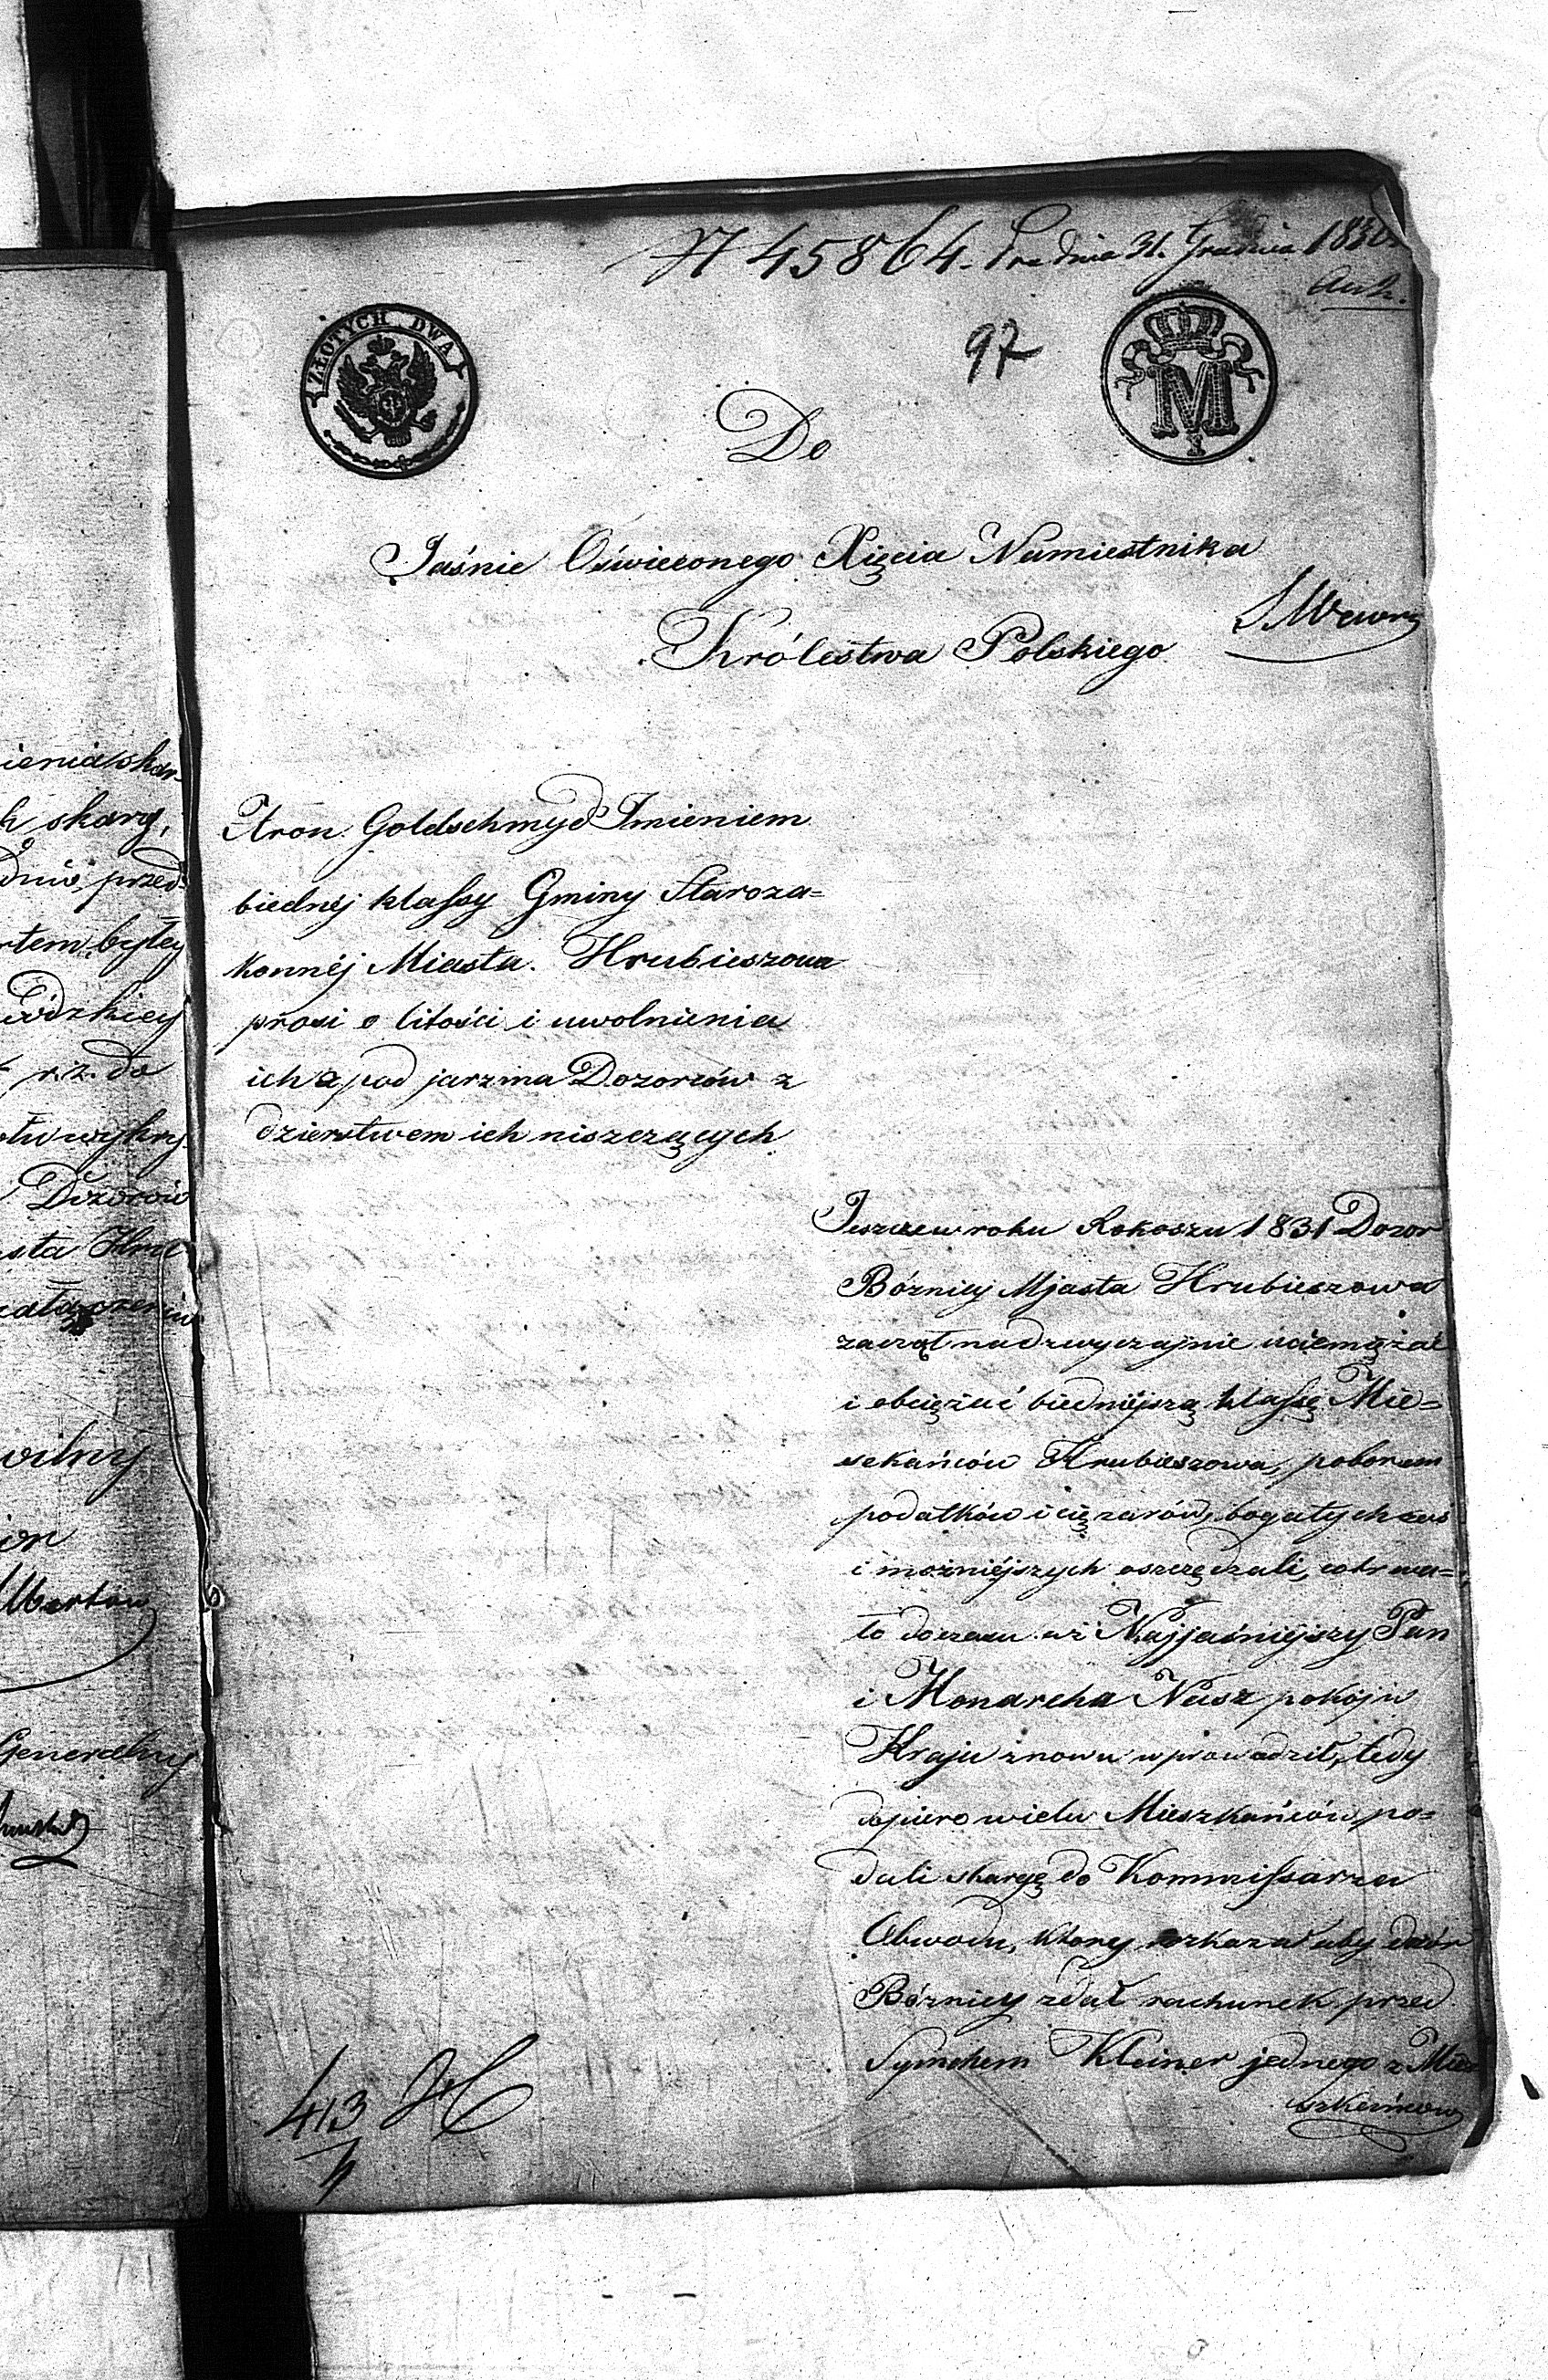 N 45864. Prae dnia 31. Grudnia 183
97
ZŁOTYCH DWA
M
Do
Jaśnie Oświeconego Xięcia Namiestnika
Królestwa Polskiego
Aron Goldschmyd Imieniem
biednéj klassy Gminy Staroza=
konnéj Miasta Hrubieszowa
prosi o litości i uwolnienia
ich z pod jarzma Dozorców z
dzierstwem ich niszczących
Jeszcze w roku Rokoszu 1831 Dozor
Bóżnicy Mjasta Hrubieszowa
zaczął nadzwyczajnie uciemężać
i obciężać biedniéjszą klassę Mie=
szkańców Hrubieszowa, poborem
podatków i ciężarów, bogatych zaś
i możniéjszych oszczędzali, co trwa=
ło do czasu aż Najjaśniejszy Pan
i Monarcha Nasz pokój w
Kraju znowu wprowadził, tedy
dopiero wielu Mieszkańców po=
dali skargę do Kommissarza
Obwodu, ktory rozkazał aby dozór
Bóżnicy zdał rachunek przed
Symchem Kleiner jednego z Mie
szkańcow
413
ienia skar-
h skarg,
dniś przed=
rtem byłey
ódzkiey
r. z. do
wykry-
Dozorów
sta Hru
wilny
Generalny